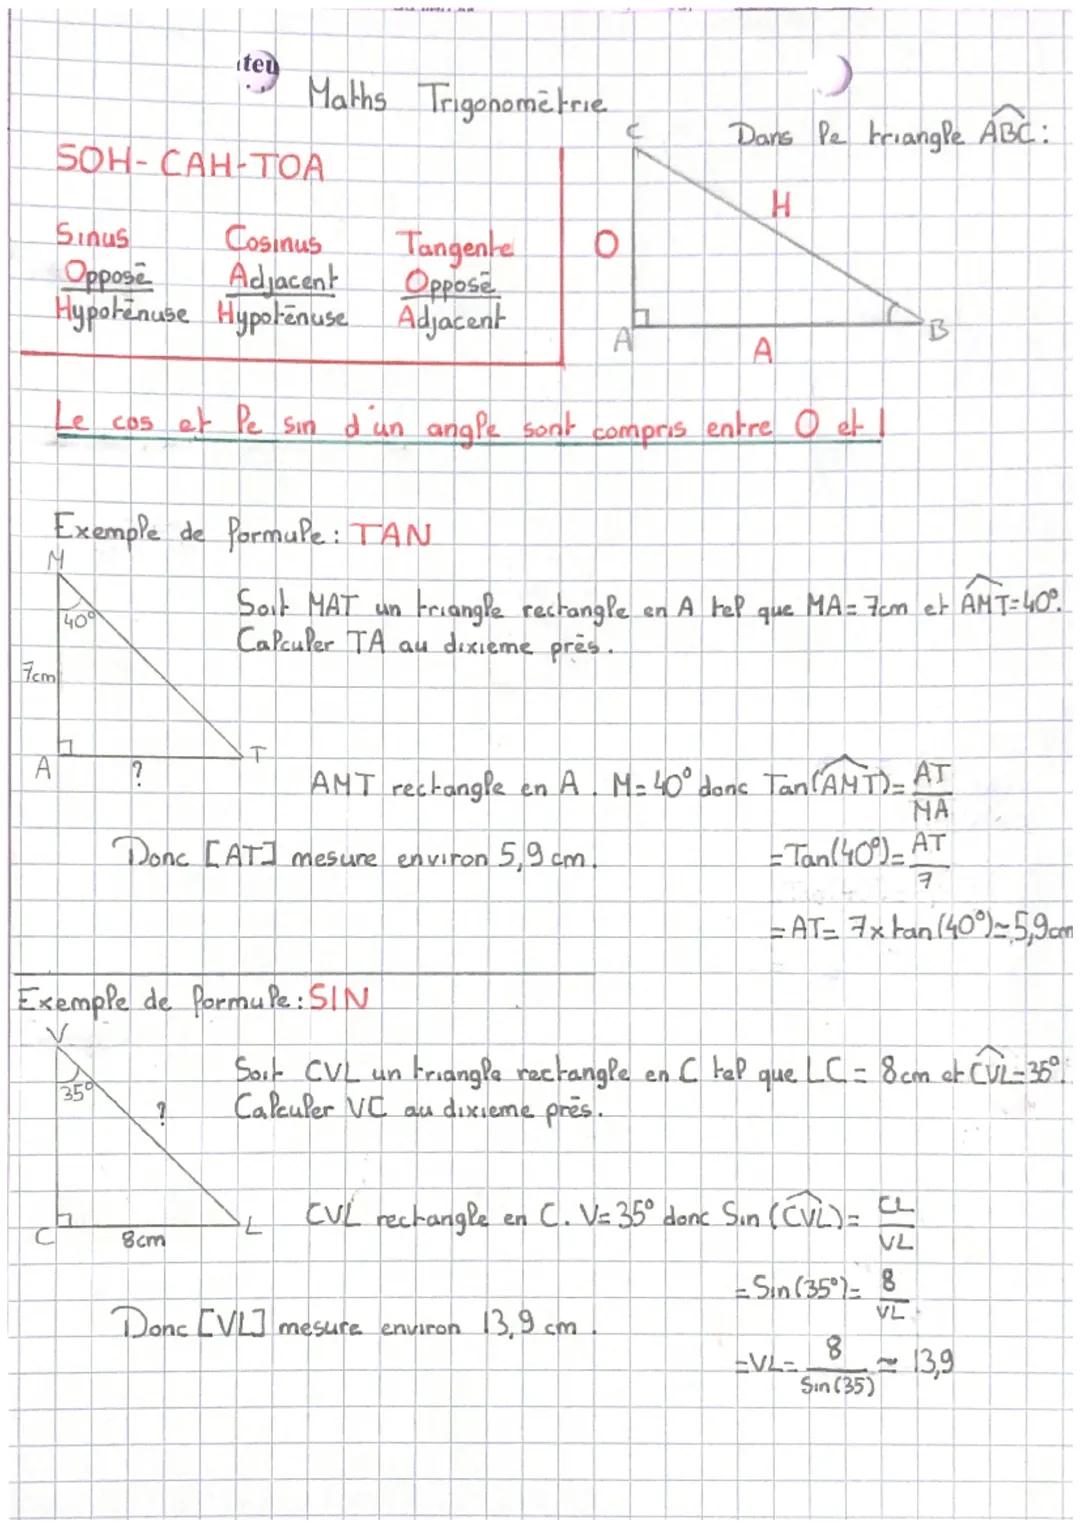 iteu
Maths Trigonométrie
SOH-CAH-TOA
Sinus Cosinus Tangente
Opposé Adjacent Opposé
Hypoténuse Hypoténuse Adjacent
Dans le triangle ABC:
C
H
O
A
B
A
Le cos et le sin d'un angle sont compris entre 0 et 1
Exemple de formule: TAN
M
40°
7cm
A
?
T
Soit MAT un triangle rectangle en A tel que MA= 7cm et AMT=40°.
Calculer TA au dixieme près.
AMT rectangle en A. M=40° donc Tan(AMT)= AT/MA
Donc [AT] mesure environ 5,9 cm.
=Tan(40°)= AT/7
=AT= 7×tan(40°)≈5,9cm
Exemple de formule: SIN
V
35°
?
C
8cm
L
Soit CVL un triangle rectangle en C tel que LC = 8cm et CVL=35°.
Calculer VC au dixieme près.
CVL rectangle en C. V=35° donc Sin(CVL)= CL/VL
=Sin(35°)= 8/VL
Donc [VL] mesure environ 13,9 cm.
=VL= 8/Sin(35) ≈ 13,9